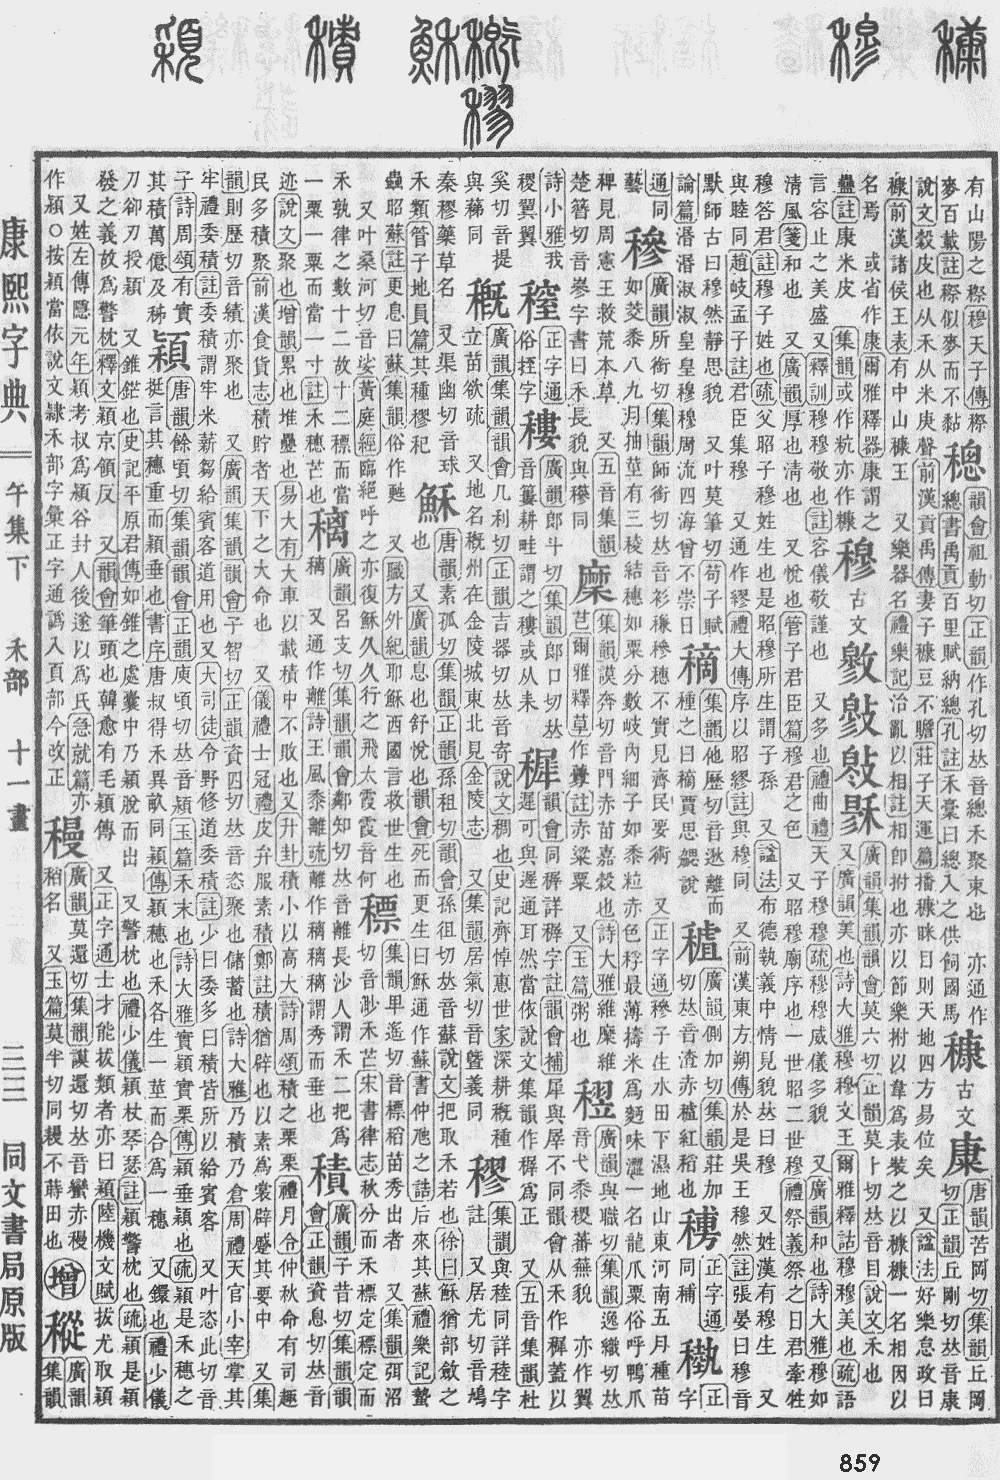 有山陽之𥡴穆天子傳𥡴麥百載註𥡴似麥而不黏
總 韻會祖動切正韻作孔切𠀤音總禾聚束也 亦通作總書禹貢百里賦納總孔註禾稾曰總入之供飼國馬
穅 古文 康 唐韻苦岡切集韻丘岡切正韻丘剛切𠀤音康
說文穀皮也从禾从米庚聲前漢貢禹傳妻子穅豆不贍莊子天運篇播穅眯目則天地四方易位矣 又諡法好樂怠政曰
穅前漢諸侯王表有中山穅王 又樂器名禮樂記治亂以相註相卽拊也亦以節樂拊以韋爲表裝之以穅穅一名相因以
名焉 或省作康爾雅釋器康謂之蠱註康米皮 集韻或作粇亦作糠
穆 古文 廣韻集韻韻會莫六切正韻莫卜切𠀤音目說文禾也
又廣韻美也詩大雅穆穆文王爾雅釋詁穆穆美也疏語言容止之美盛又釋訓穆穆敬也註容儀敬謹也 又多也禮曲禮天子穆穆疏穆穆威儀多貌 又廣韻和也詩大雅穆如
淸風箋和也 又廣韻厚也淸也 又悅也管子君臣篇穆君之色 又昭穆廟序也一世昭二世穆禮祭義祭之日君牽牲
穆答君註穆子姓也疏父昭子穆姓生也是昭穆所生謂子孫 又諡法布德執義中情見貌𠀤曰穆 又姓漢有穆生 又
與睦同趙岐孟子註君臣集穆 又通作繆禮大傳序以昭繆註與穆同 又前漢東方朔傳於是吳王穆然註張晏曰穆音
默師古曰穆然靜思貌 又叶莫筆切荀子賦論篇湣湣淑淑皇皇穆穆周流四海曾不崇日
𥡦 集韻他歷切音逖離而種之曰𥡦賈思勰說
䅳 廣韻側加切集韻莊加切𠀤音渣赤䅳紅稻也
𥡲 正字通同補
𥡝 正字通同 
藝
穇 廣韻所銜切集韻師銜切𠀤音衫穇穇穗不實見齊民要術 又正字通穇子生水田下濕地山東河南五月種苗
如茭黍八九月抽莖有三稜結穗如粟分數岐內細子如黍粒赤色稃最薄擣米爲麪味澀一名龍爪粟俗呼鴨爪
稗見周憲王救荒本草 又五音集韻楚簪切音嵾字書曰禾長貌與槮同
穈 集韻謨奔切音門赤苗嘉穀也詩大雅維穈維芑爾雅釋草作虋註赤粱粟 又玉篇粥也
廣韻與職切集韻逸織切𠀤音弋黍稷蕃蕪貌 亦作翼詩小雅我稷翼翼
𥠻 正字通俗挳字
䅹 廣韻郎斗切集韻郎口切𠀤音簍耕畦謂之䅹或从耒
穉 韻會同稺詳稺字註韻會補遲可與遲通耳然當依說文集韻作稺爲正 又五音集韻杜奚切音提
穊 廣韻集韻韻會几利切正韻吉器切𠀤音寄說文稠也史記齊悼惠世家深耕穊種立苗欲疏 又地名穊州在金陵城東北見金陵志 又集韻居氣切音曁義同
穋 集韻與稑同詳稑字註 又居尤切音鳩秦穋藥草名 又渠幽切音球禾類管子地員篇其種穋秬
穌 唐韻素孤切集韻正韻孫祖切韻會孫徂切𠀤音蘇說文把取禾若也徐曰穌猶部斂之也 又廣韻息也舒悅也韻會死而更生曰穌通作蘇書仲虺之誥后來其蘇禮樂記蟄蟲昭蘇註更息曰蘇集韻俗作甦 又職方外紀耶穌西國言救世主也 又叶桑河切音娑黃庭經臨絕呼之亦復穌久久行之飛太霞霞音何
標 集韻卑遙切音標稻苗秀出者 又集韻弭沼切音渺禾芒宋書律志秋分而禾標定標定而禾孰律之數十二故十二標而當一粟一粟而當一寸註禾穗芒也
穲 廣韻呂支切集韻韻會鄰知切𠀤音離長沙人謂禾二把爲穲 又通作離詩王風黍離疏離作穲穲穲謂秀而垂也
積 廣韻子昔切集韻韻會正韻資息切𠀤音迹說文聚也增韻累也堆疊也易大有大車以載積中不敗也又升卦積小以高大詩周頌積之栗栗禮月令仲秋命有司趣
民多積聚前漢食貨志積貯者天下之大命也 又儀禮士冠禮皮弁服素積鄭註積猶辟也以素爲裳辟蹙其要中 又集韻則歷切音績亦聚也 又廣韻集韻韻會子智切正韻資四切𠀤音恣聚也儲蓄也詩大雅乃積乃倉周禮天官小宰掌其
牢禮委積註委積謂牢米薪芻給賓客道用也又大司徒令野修道委積註少曰委多曰積皆所以給賓客 又叶恣此切音子詩周頌有實其積萬億及秭
穎 唐韻餘頃切集韻韻會正韻庾頃切𠀤音潁玉篇禾末也詩大雅實穎實栗傳穎垂穎也疏穎是禾穗之挺言其穗重而穎垂也書序唐叔得禾異畝同穎傳穎穗也禾各生一莖而合爲一穗 又鐶也禮少儀
刀卻刃授穎 又錐鋩也史記平原君傳如錐之處囊中乃穎脫而出 又警枕也禮少儀穎杖琴瑟註穎警枕也疏穎是穎
發之義故爲警枕釋文穎京領反 又韻會筆頭也韓愈有毛穎傳 又正字通士才能拔類者亦曰穎陸機文賦拔尤取穎
又姓左傳隱元年穎考叔爲穎谷封人後遂以爲氏急就篇亦作潁○按穎當依說文隸禾部字彙正字通譌入頁部今改正
䅼 廣韻莫還切集韻謨還切𠀤音蠻赤䅼稻名 又玉篇莫半切同縵不蒔田也
增
䡮 廣韻集韻
康熙字典 午集下 禾部 十一畫 三三 同文書局原版
859